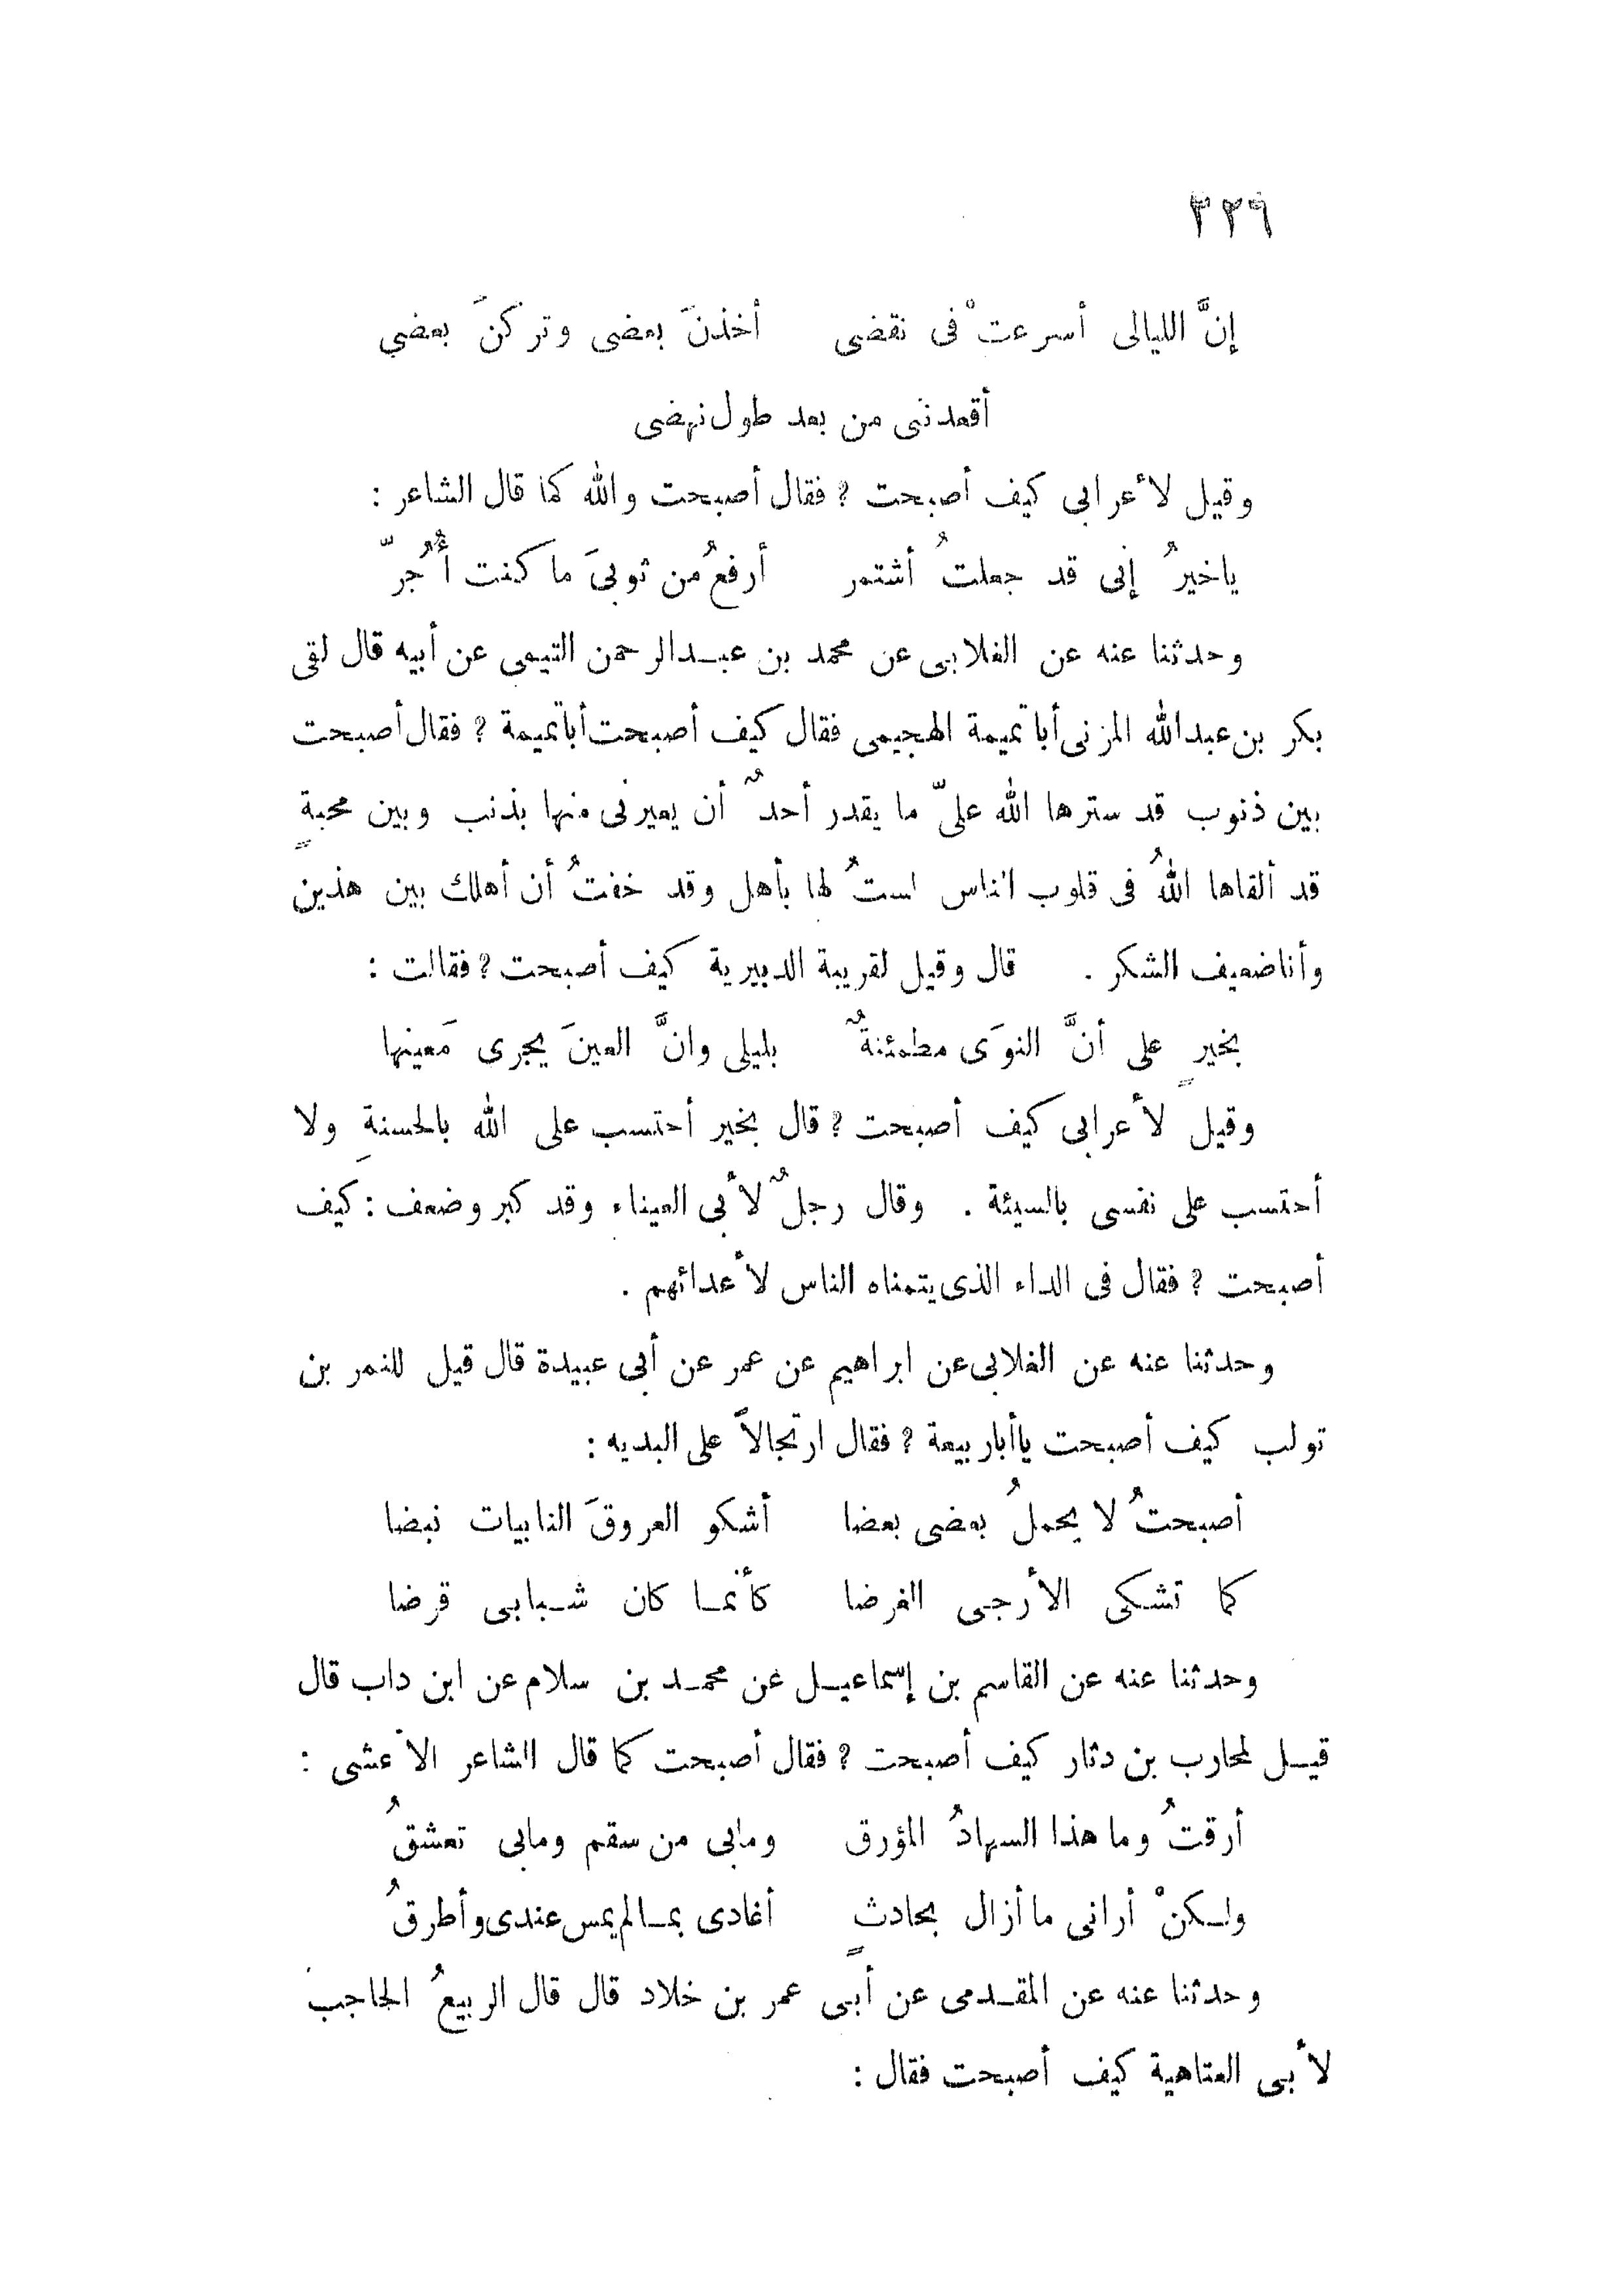 ٢٢٩
إنَّ الليالى أسرعتْ فى نقضى أخذنَ بعضى وتركنَ بعضي
أقعدنى من بعد طول نهضى
وقيل لأعرابى كيف أصبحت ? فقال أصبحت والله كما قال الشاعر :
ياخيرُ إنى قد جعلتُ أشتمر أرفعُ من ثوبىَ ما كنت أُجرّ
وحدثنا عنه عن الغلابى عن محمد بن عبدالرحمن التيمى عن أبيه قال لقى
بكر بن عبدالله المزنى أبا تميمة الهجيمى فقال كيف أصبحت أبا تميمة ? فقال أصبحت
بين ذنوب قد سترها الله علىّ ما يقدر أحدٌ أن يعيرنى منها بذنب وبين محبةٍ
قد ألقاها اللهُ فى قلوب الناس لستُ لها بأهل وقد خفتُ أن أهلك بين هذين
وأنا ضعيف الشكر . قال وقيل لقريبة الدبيرية كيف أصبحت ? فقالت :
بخيرٍ على أنَّ النوَى مطمئنةٌ بليلى وانَّ العينَ يجرى مَعينها
وقيل لأعرابى كيف أصبحت ? قال بخير أحتسب على الله بالحسنةِ ولا
أحتسب على نفسى بالسيئة . وقال رجلٌ لأبى العيناء وقد كبر وضعف : كيف
أصبحت ? فقال فى الداء الذى يتمناه الناس لأعدائهم .
وحدثنا عنه عن الغلابى عن ابراهيم عن عمر عن أبى عبيدة قال قيل للنمر بن
تولب كيف أصبحت ياأبا ربيعة ? فقال ارتجالاً على البديه :
أصبحتُ لا يحملُ بعضى بعضا أشكو العروقَ النابيات نبضا
كما تشكى الأرجى الغرضا كأنما كان شبابى قرضا
وحدثنا عنه عن القاسم بن إسماعيل عن محمد بن سلام عن ابن داب قال
قيل لمحارب بن دثار كيف أصبحت ? فقال أصبحت كما قال الشاعر الأعشى :
أرقتُ وما هذا السهادُ المؤرق ومابى من سقم ومابى تعشقُ
ولكنْ أرانى ما أزال بحادثٍ أغادى بمالم يمس عندى وأطرقُ
وحدثنا عنه عن المقدمى عن أبى عمر بن خلاد قال قال الربيعُ الحاجب
لأبى العتاهية كيف أصبحت فقال :